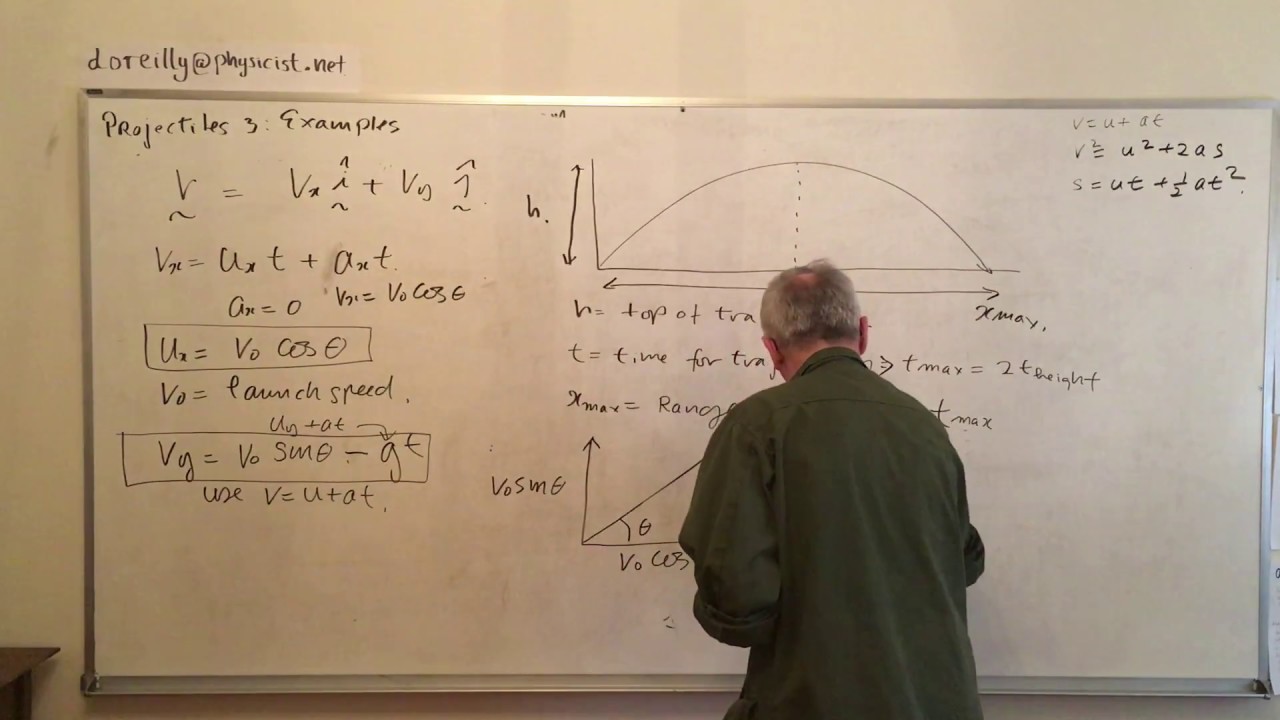 doreilly@physicist.net
Projectiles 3: Examples
V = Vx i + Vy j
Vx = Ux t + ax t.
ax = 0 Vx = V0 cos θ
Ux = V0 cos θ
V0 = launch speed.
Uy + at
Vy = V0 sin θ - gt
use V = u + at.
h.
xmax.
h = top of tra
t = time for traj ⇒ tmax = 2 theight
xmax = Range tmax
V0 sin θ
θ
V0 cos
v = u + at
v² = u² + 2as
s = ut + ½ at².